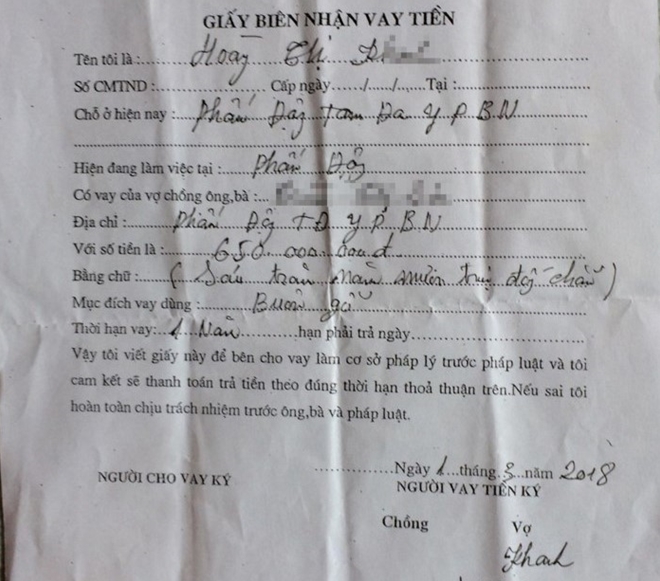 GIẤY BIÊN NHẬN VAY TIỀN
Tên tôi là : Hoàng Thị
Số CMTND :.................... Cấp ngày ....../....../....... Tại :....................
Chỗ ở hiện nay : Phấn Động Tam Đa Y P B.N
Hiện đang làm việc tại : Phấn Động
Có vay của vợ chồng ông,bà :
Địa chỉ : Phấn Động TĐ Y P. B N
Với số tiền là : 650.000.000đ
Bằng chữ : (Sáu trăm năm mươi triệu đồng chẵn)
Mục đích vay dùng : Buôn gỗ
Thời hạn vay: 1 Năm hạn phải trả ngày
Vậy tôi viết giấy này để bên cho vay làm cơ sở pháp lý trước pháp luật và tôi
cam kết sẽ thanh toán trả tiền theo đúng thời hạn thoả thuận trên.Nếu sai tôi
hoàn toàn chịu trách nhiệm trước ông,bà và pháp luật.
Ngày 1 tháng 3 năm 2018
NGƯỜI CHO VAY KÝ NGƯỜI VAY TIỀN KÝ
Chồng Vợ
Khanh